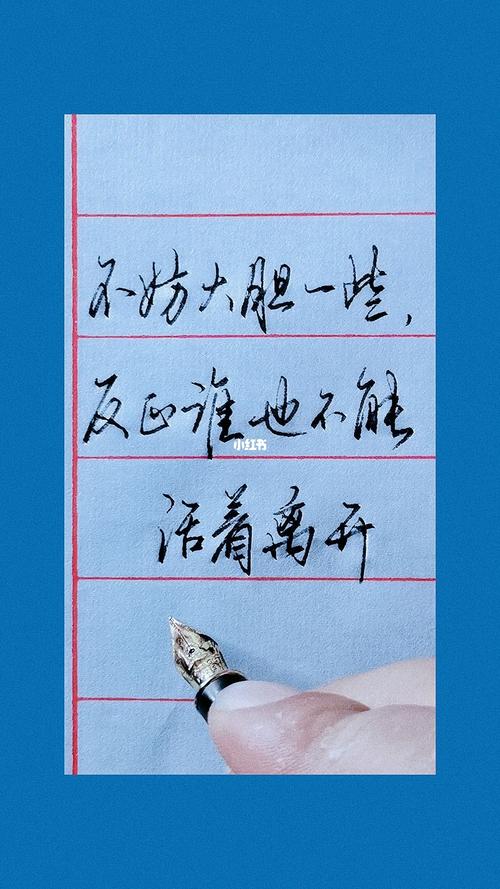 不妨大胆一些，
反正谁也不能
小红书
活着离开